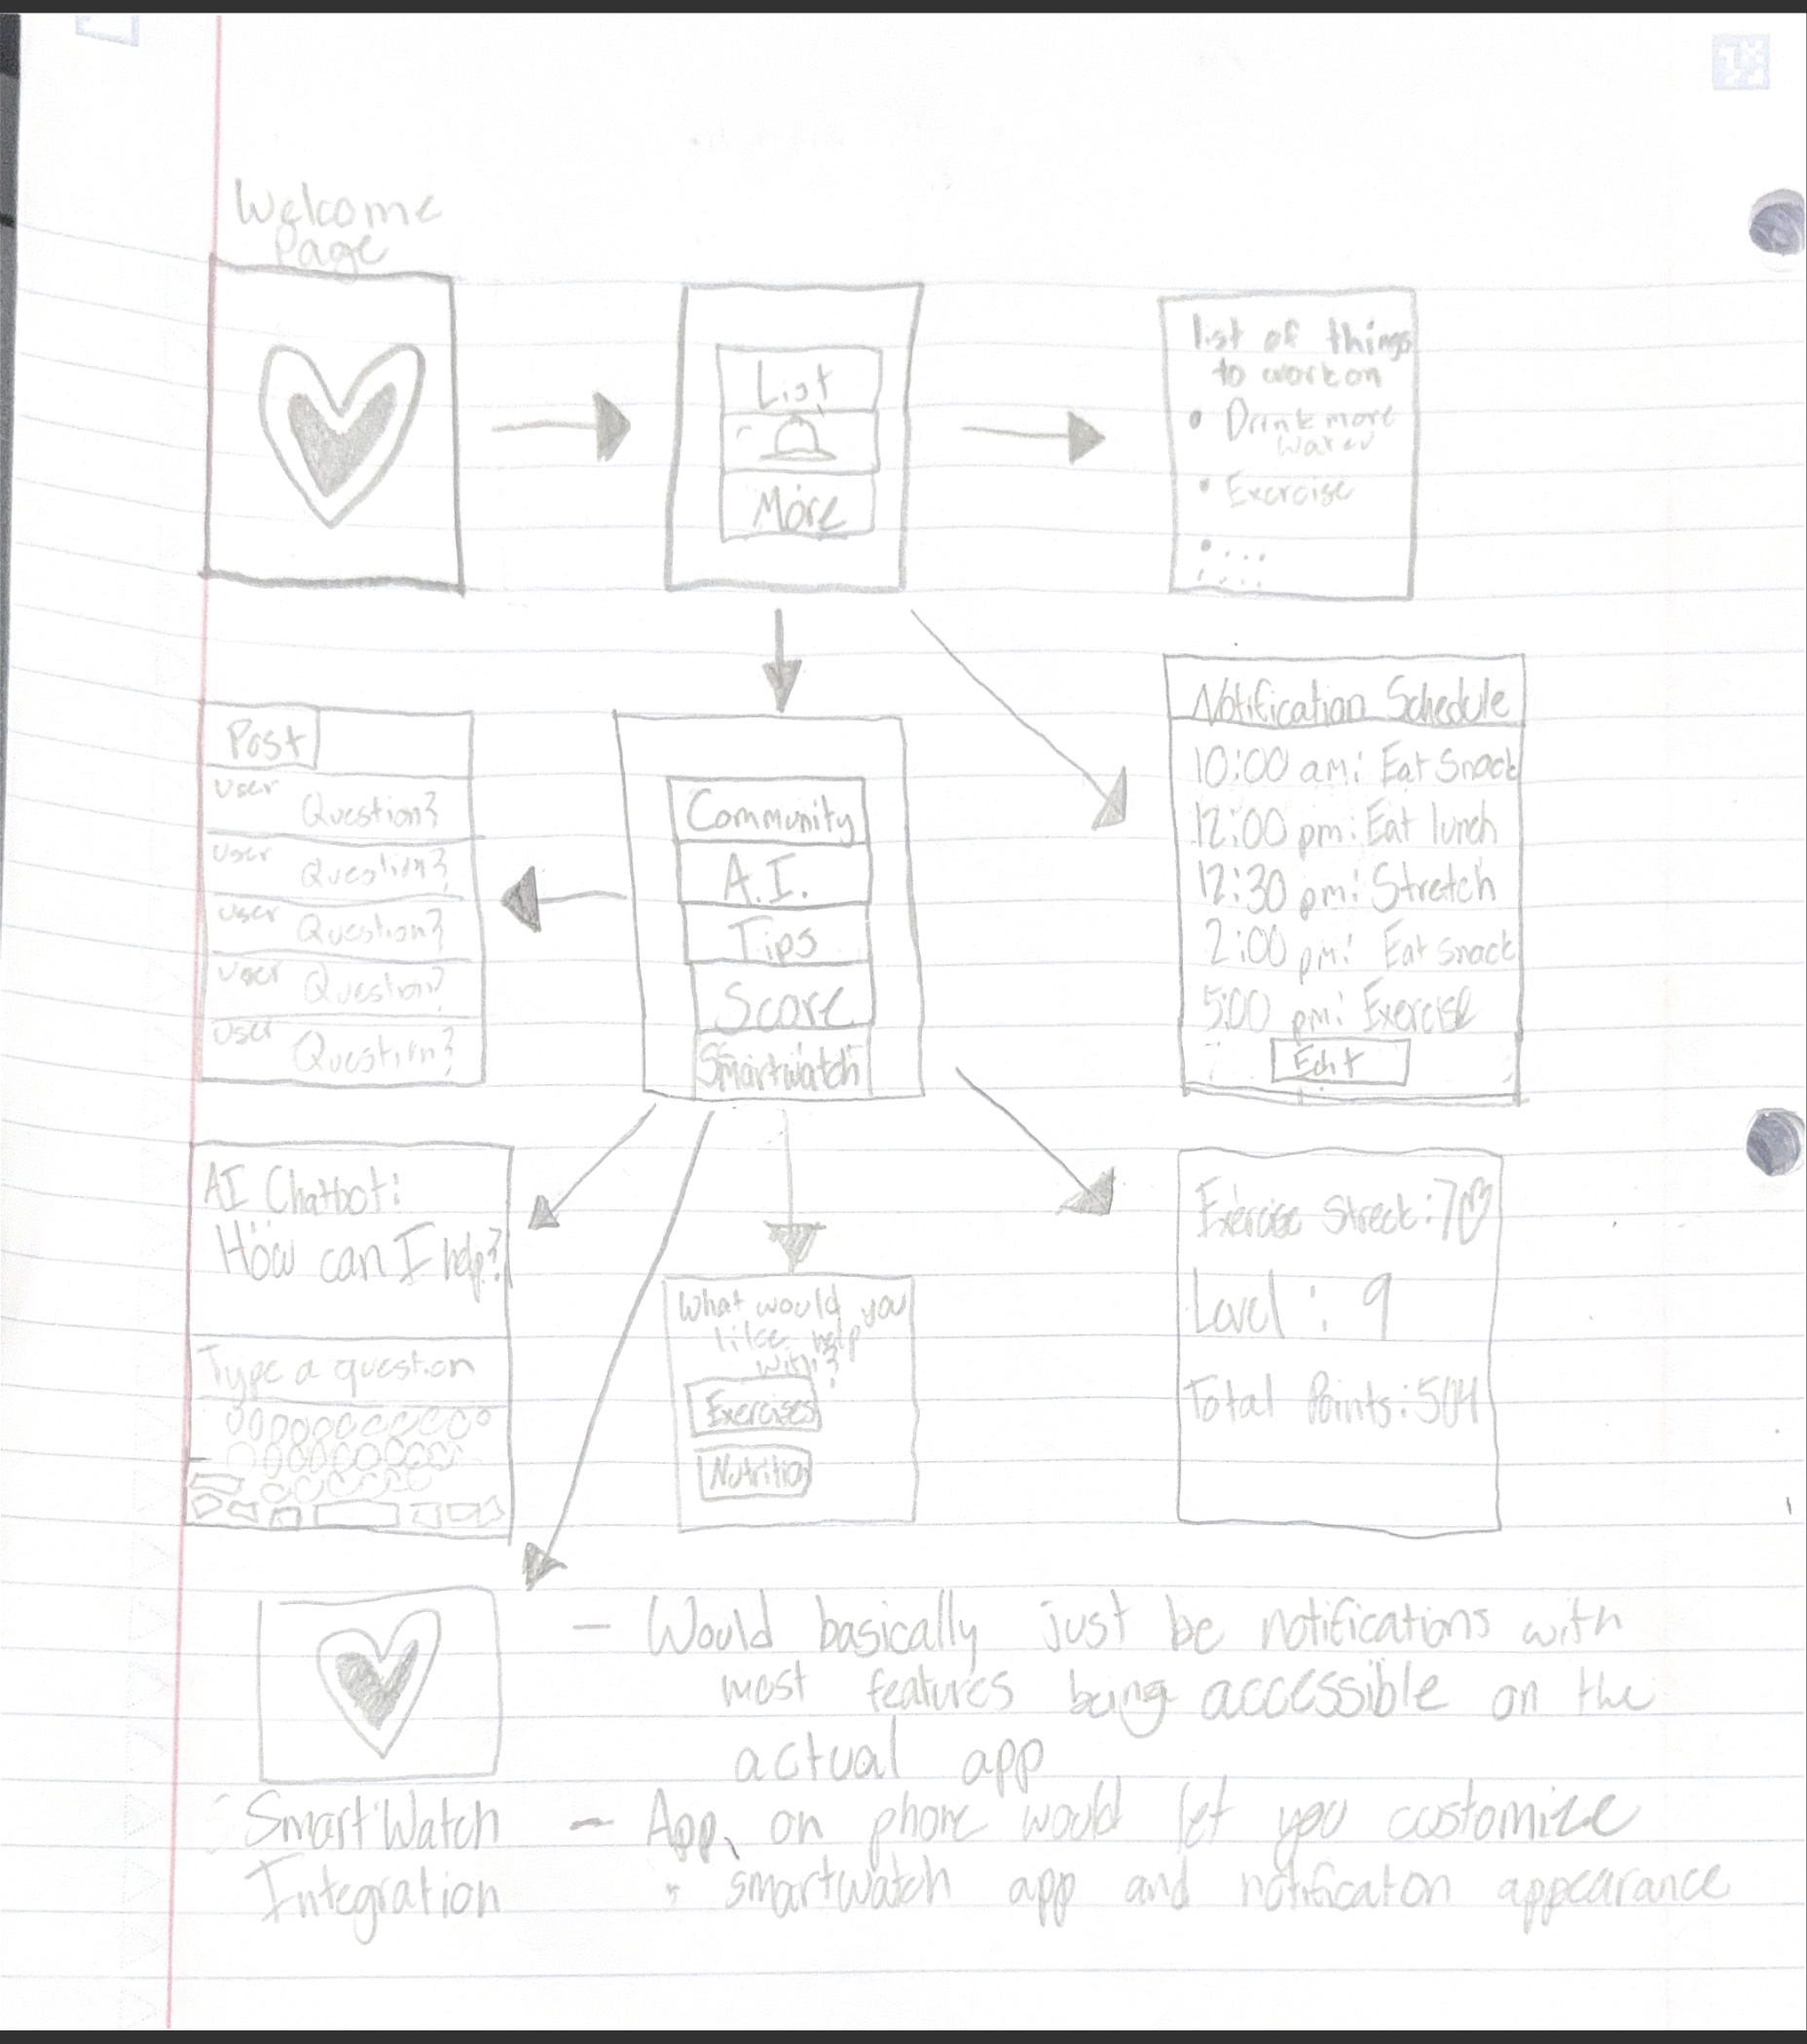 Welcome
Page
List
More
list of things
to work on
• Drink more
water
• Exercise
• ...
....
Post
User
Question?
User
Question?
User
Question?
User
Question?
User
Question?
Community
A.I.
Tips
Score
Smartwatch
Notification Schedule
10:00 am: Eat Snack
12:00 pm: Eat lunch
12:30 pm: Stretch
2:00 pm: Eat snack
5:00 pm: Exercise
Edit
AI Chatbot:
How can I help?
Type a question
What would you
like help
with?
Exercises
Nutrition
Exercise Streek: 70
Level: 9
Total Points: 504
SmartWatch
Integration
– Would basically just be notifications with
most features being accessible on the
actual app
– App, on phone would let you customize
smartwatch app and notificaton appearance